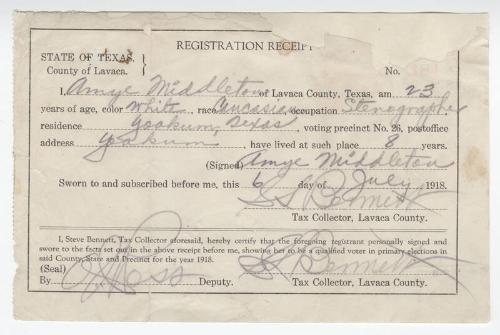 REGISTRATION RECEIPT
STATE OF TEXAS,
County of Lavaca. No.
I, Amye Middleton of Lavaca County, Texas, am 23
years of age, color White, race Caucasian occupation Stenographer
residence Yoakum, Texas, voting precinct No. 26, postoffice
address Yoakum, have lived at such place 8 years.
(Signed) Amye Middleton
Sworn to and subscribed before me, this 6 day of July, 1918.
S S Bennett
Tax Collector, Lavaca County.
I, Steve Bennett, Tax Collector aforesaid, hereby certify that the foregoing registrant personally signed and
swore to the facts set out in the above receipt before me, showing her to be a qualified voter in primary elections in
said County, State and Precinct for the year 1918.
(Seal) S S Bennett
By Deputy. Tax Collector, Lavaca County.